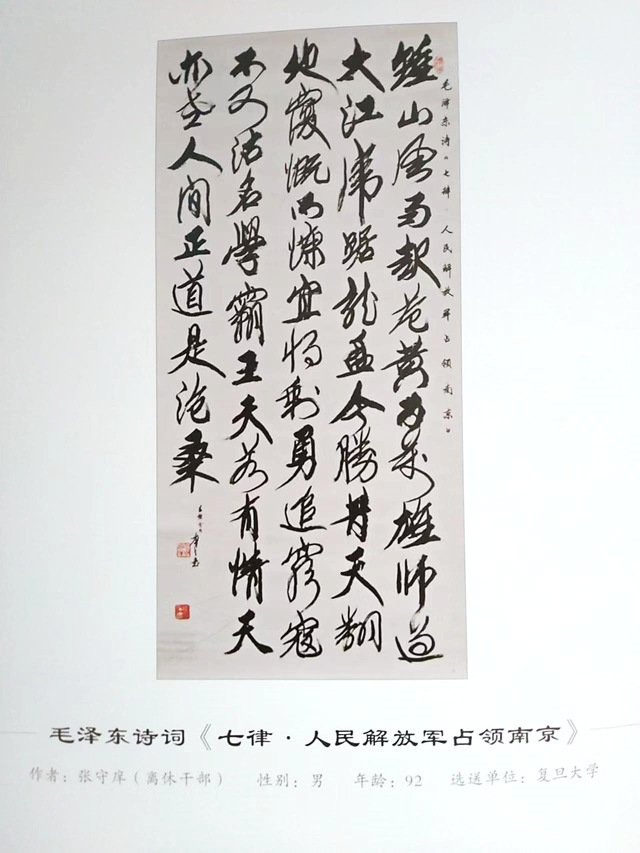 毛泽东诗《七律·人民解放军占领南京》
鍾山風雨起苍黄百萬雄师过
大江虎踞龙盘今勝昔天翻
地覆慨而慷宜将剩勇追窮寇
不可沽名學霸王天若有情天
亦老人間正道是沧桑
毛泽东诗词《七律·人民解放军占领南京》
作者：张守（离休干部） 性别：男 年龄：92 选送单位：复旦大学